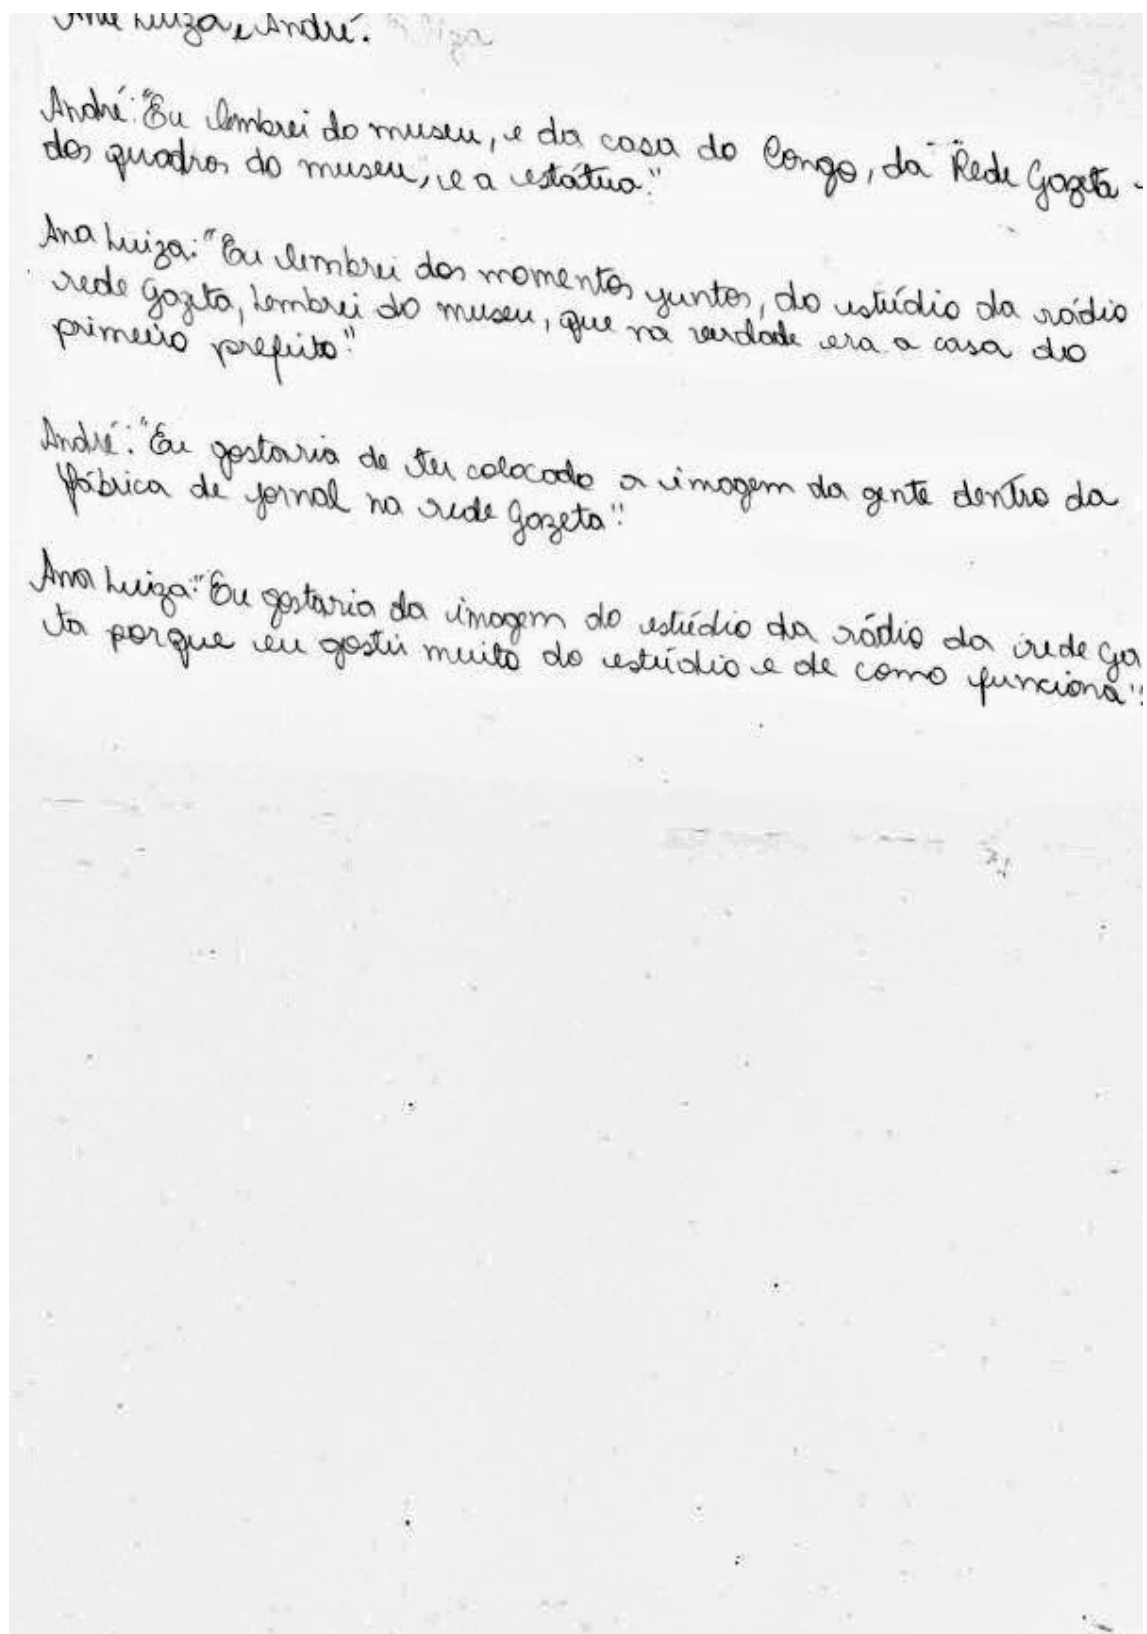 Ana Luiza e André.
André: "Eu lembrei do museu, e da casa do Congo, da Rede Gazeta
dos quadros do museu, e a estátua."
Ana Luiza: "Eu lembrei dos momentos juntos, do estúdio da rádio
rede Gazeta, lembrei do museu, que na verdade era a casa do
primeiro prefeito."
André: "Eu gostaria de ter colocado a imagem da gente dentro da
fábrica de jornal na rede Gazeta".
Ana Luiza: "Eu gostaria da imagem do estúdio da rádio da rede Ga
ta porque eu gostei muito do estúdio e de como funciona".